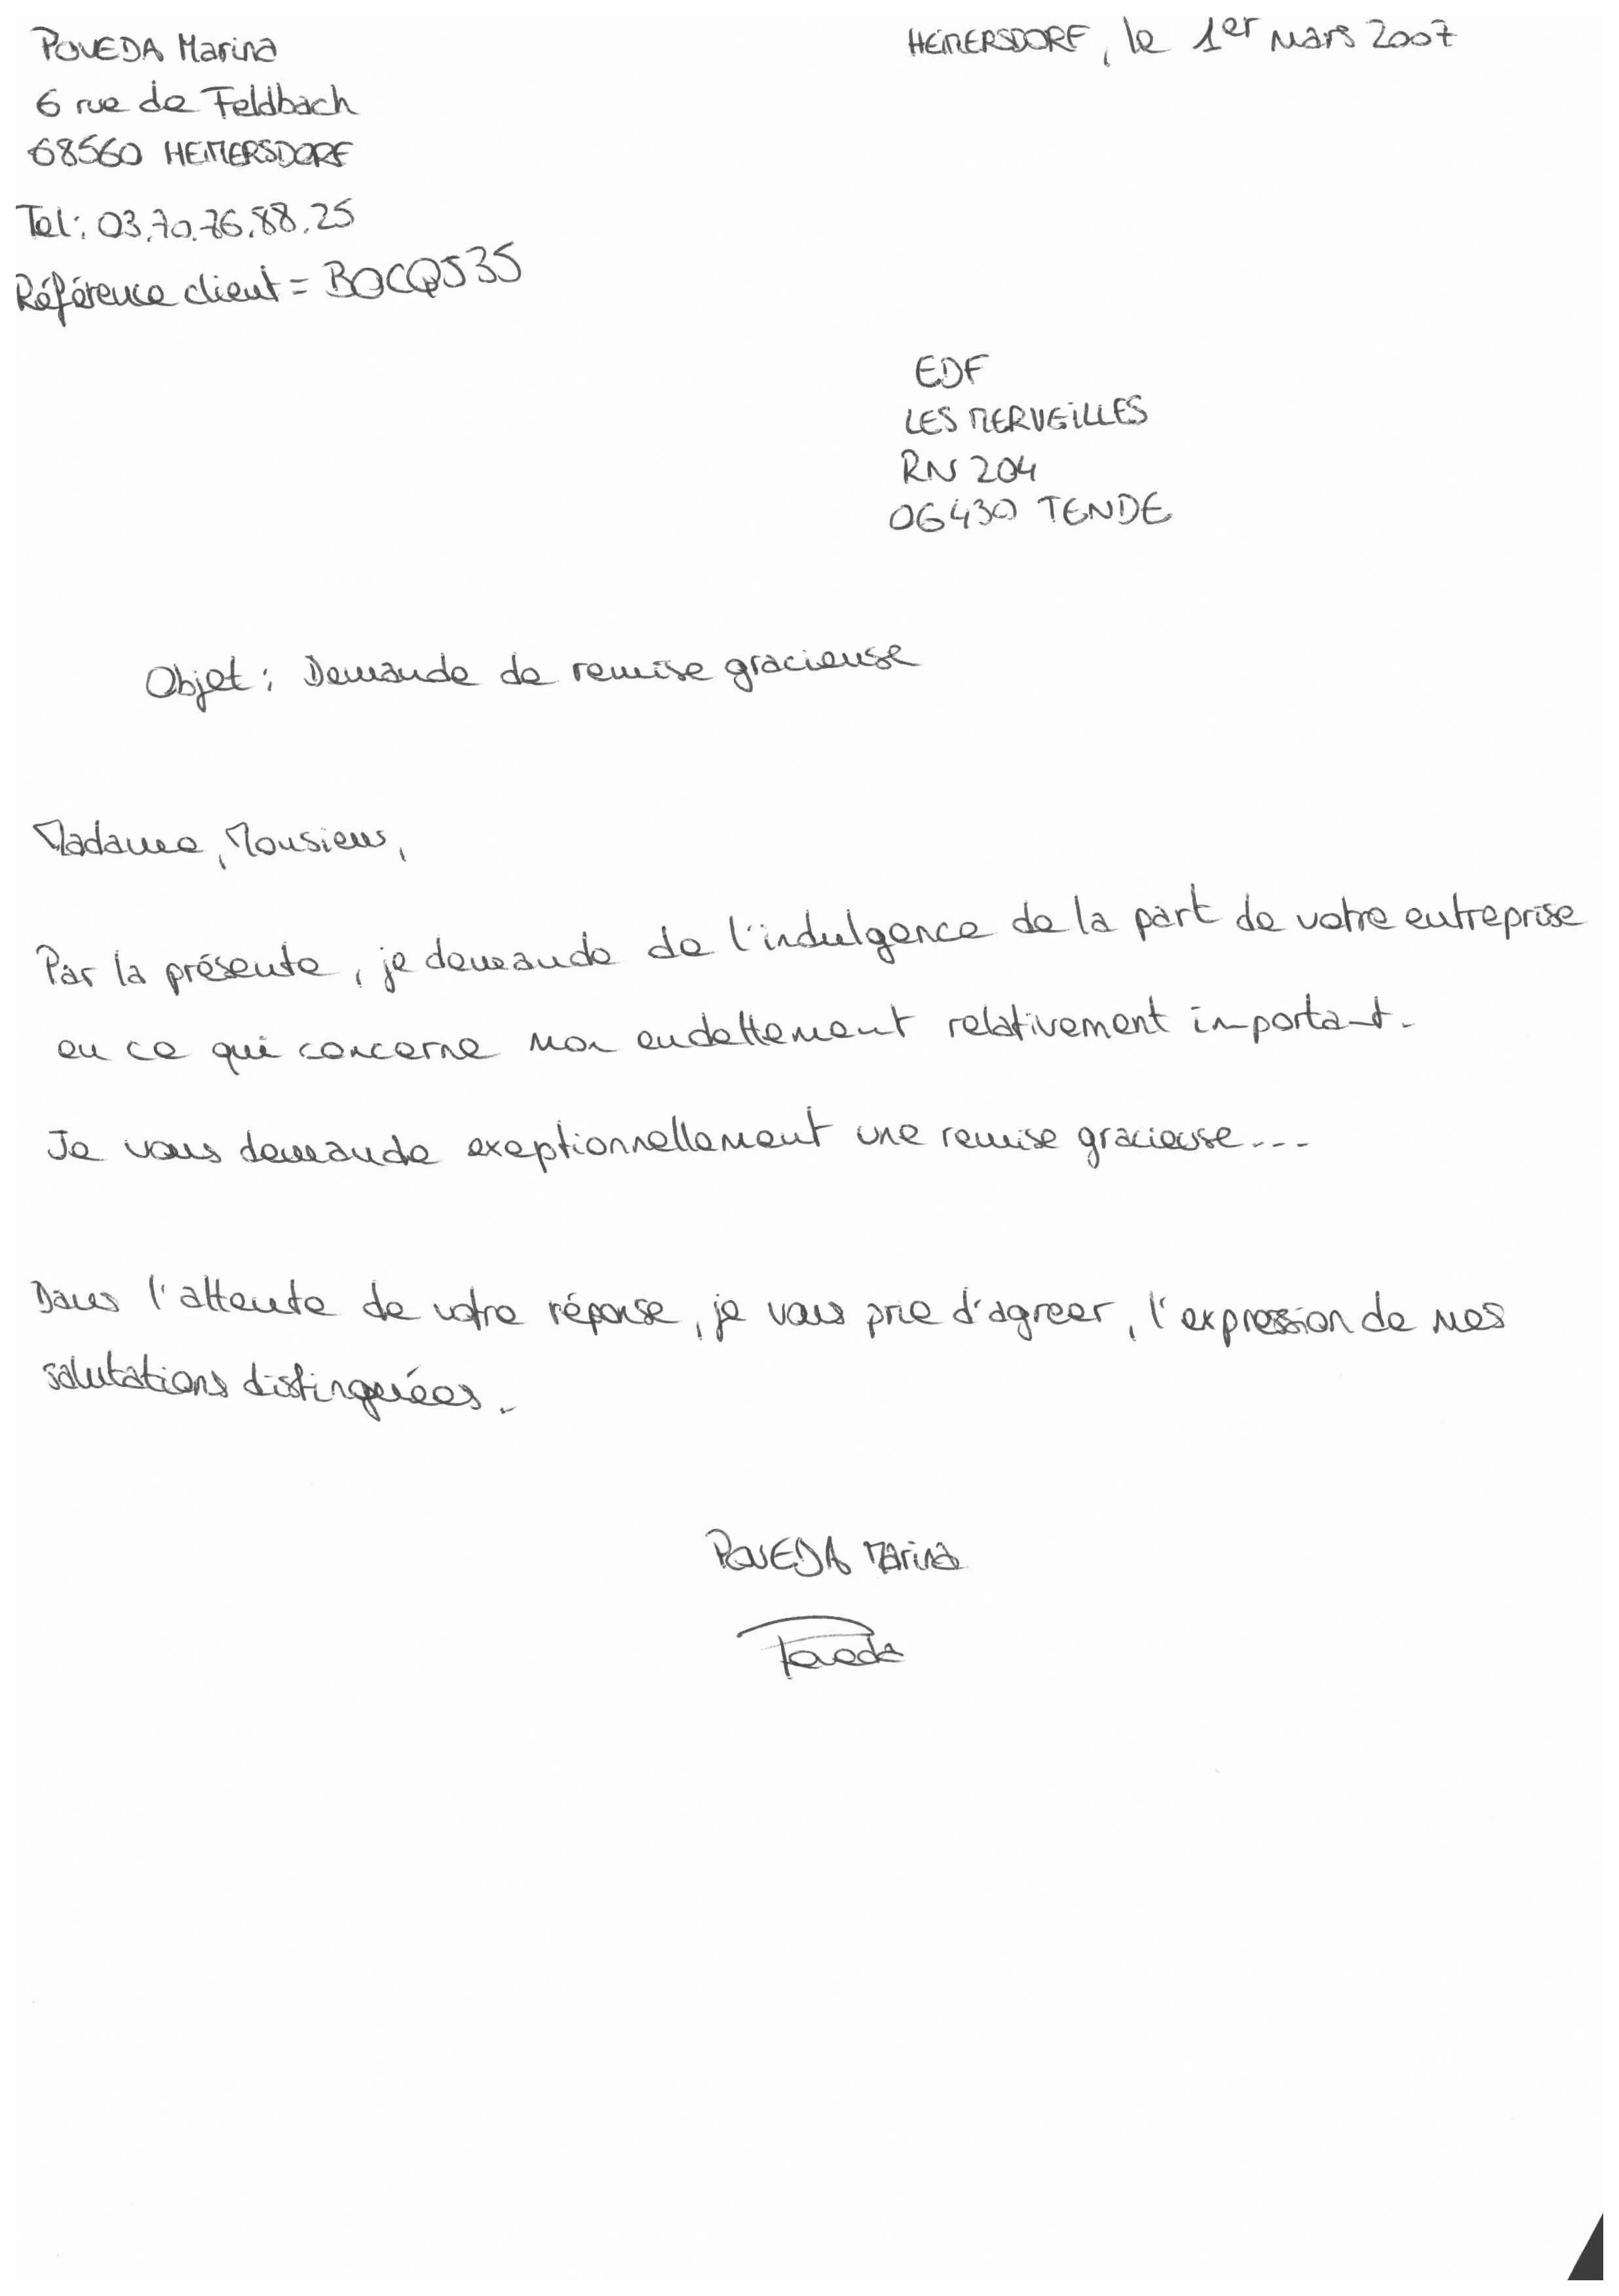 POVEDA Marina
6 rue de Feldbach
68560 HEIMERSDORF
Tel: 03.70.76.88.25
Référence client = BOCQS35
HEIMERSDORF, le 1er mars 2007
EDF
LES MERVEILLES
RN 204
06430 TENDE
Objet : Demande de remise gracieuse
Madame, Monsieur,
Par la présente, je demande de l'indulgence de la part de votre entreprise
en ce qui concerne mon endettement relativement important.
Je vous demande exeptionnellement une remise gracieuse...
Dans l'attente de votre réponse, je vous prie d'agreer, l'expression de mes
salutations distinguées.
POVEDA Marina
Poveda